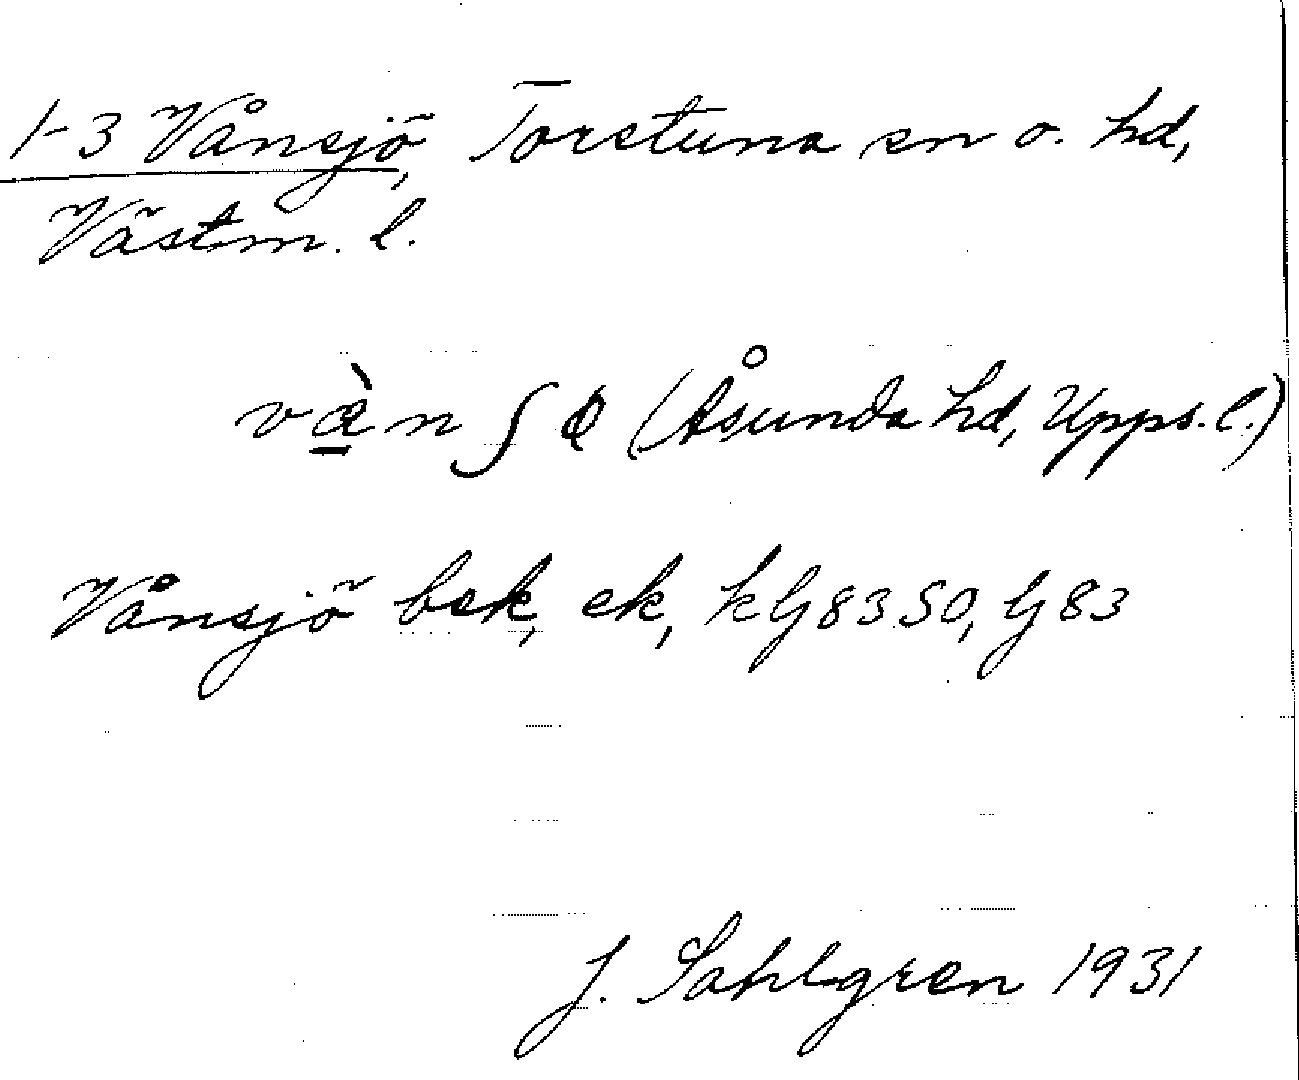 1-3 Vånsjö, Torstuna sn o. hd,
Västm. l.
(Åsunda hd, Upps. l.)
Vånsjö bsk, ek, k G 83 SO, G 83
J. Sahlgren 1931